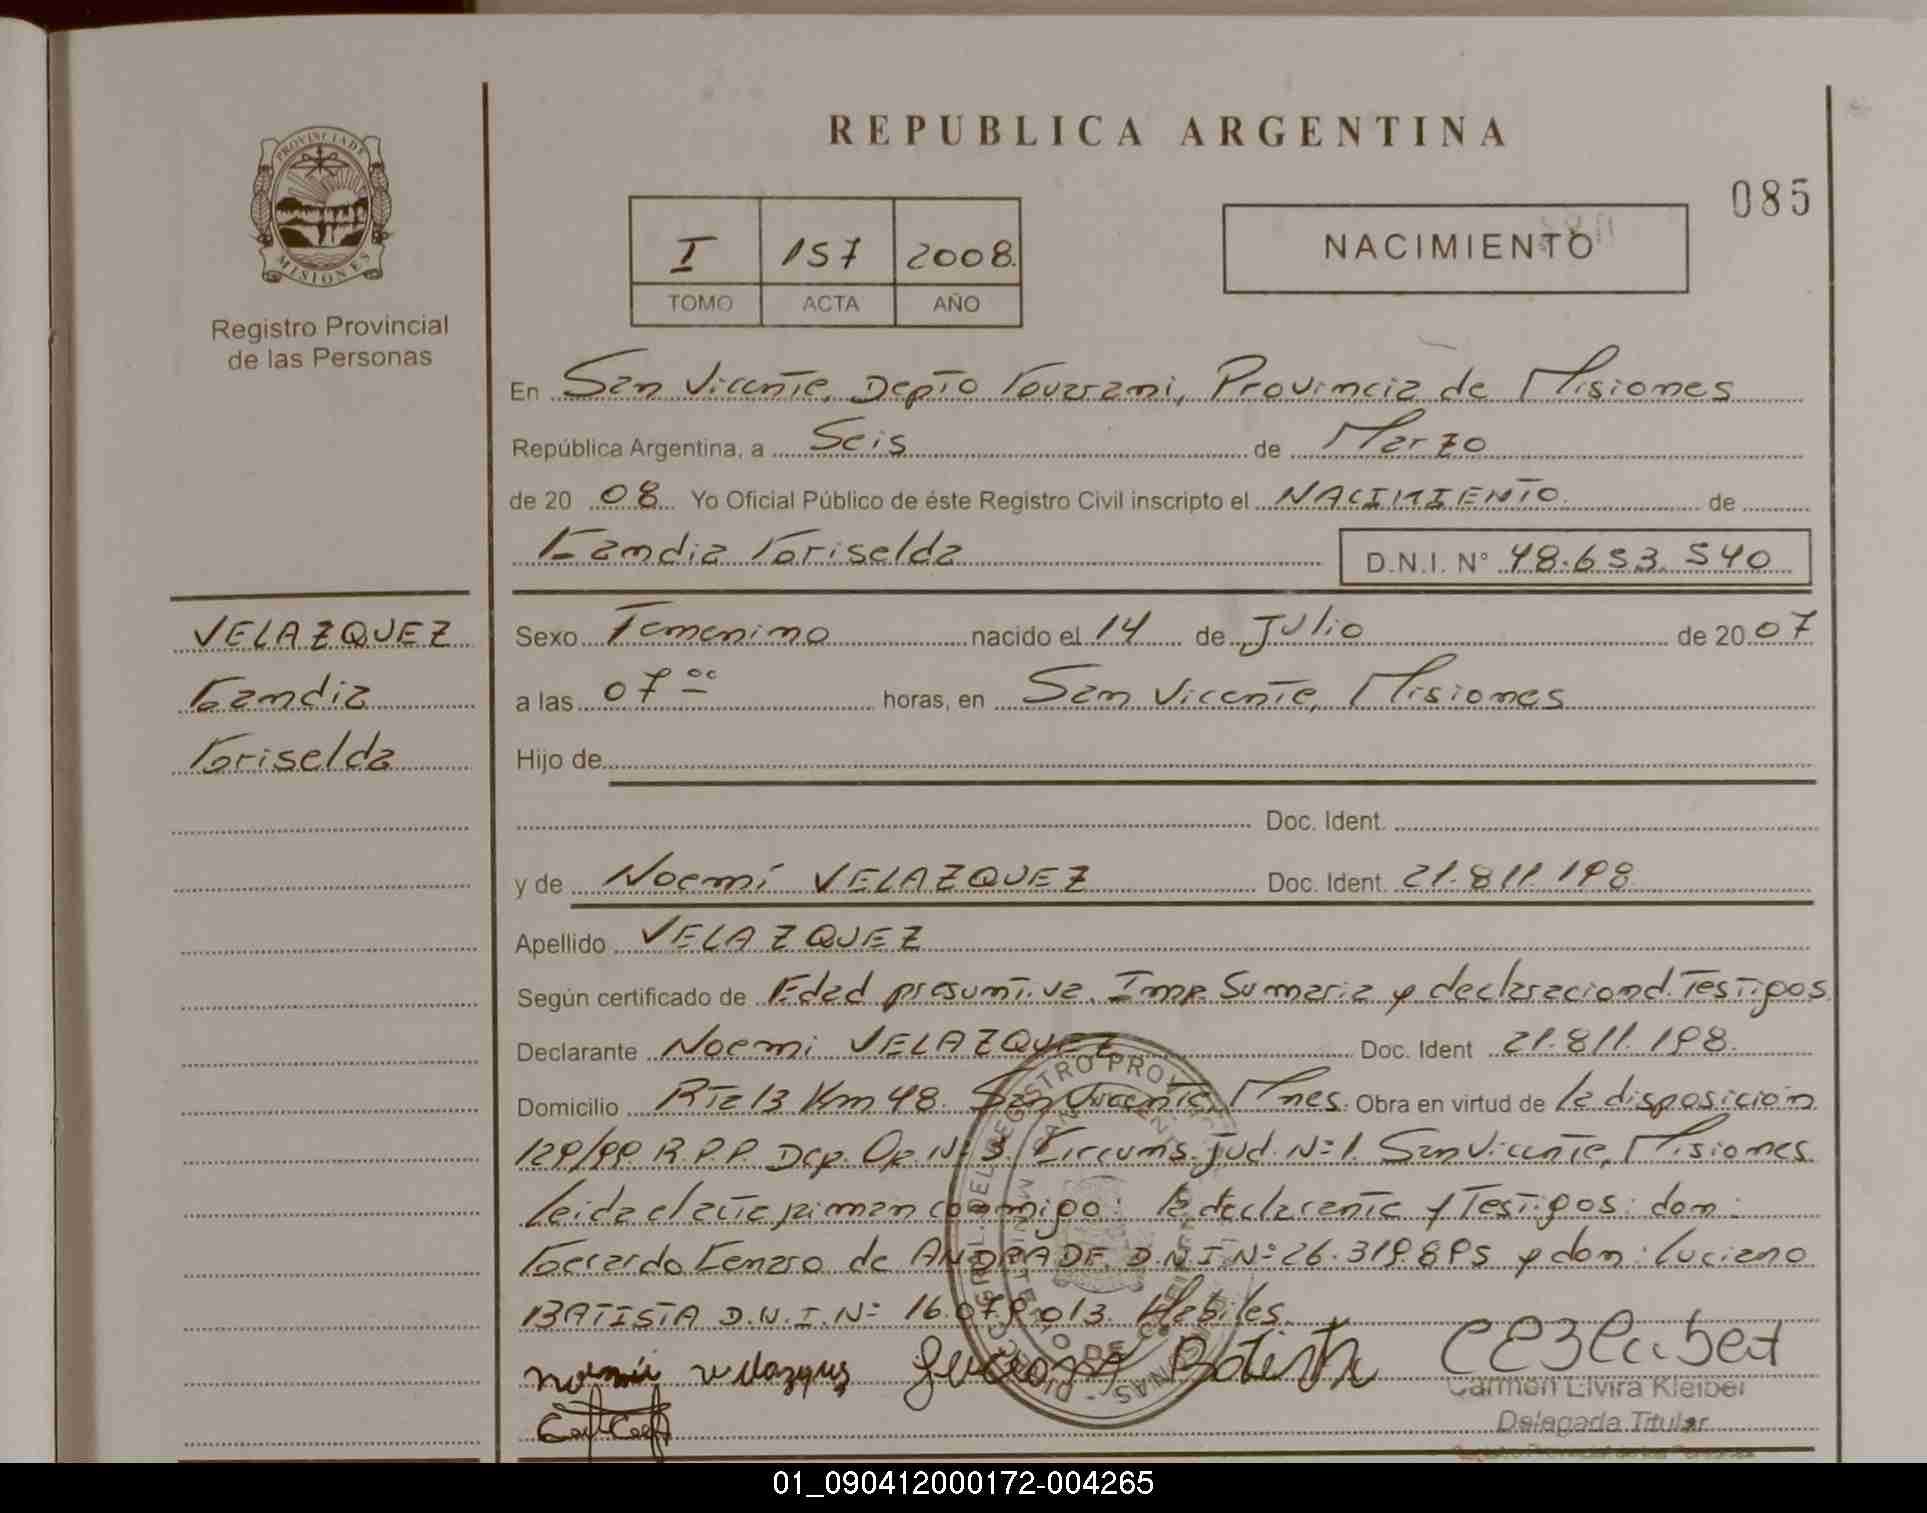 REPUBLICA ARGENTINA
085
PROVINCIA DE
MISIONES
Registro Provincial
de las Personas
I 157 2008.
TOMO ACTA AÑO
NACIMIENTO
En San Vicente, Depto Guarani, Provincia de Misiones
República Argentina, a Seis de Marzo
de 20 08 Yo Oficial Público de éste Registro Civil inscripto el NACIMIENTO. de
Griselda D.N.I. N° 48.653.540
VELAZQUEZ
Griselda
Sexo Femenino nacido el 14 de Julio de 20 07
a las 07 oo horas, en San Vicente, Misiones
Hijo de
Doc. Ident.
y de Noemí VELAZQUEZ Doc. Ident. 21.811.198
Apellido VELAZQUEZ
Según certificado de Edad presuntiva, Inf. Sumaria y declaracion d. Testigos
Declarante Noemi VELAZQUEZ Doc. Ident 21.811.198.
Domicilio Rta 13 Km 48. San Vicente, Mnes. Obra en virtud de la disposición
129/99 R.P.P. Dep. Op. N= 3 Circuns. Jud. N=1. San Vicente, Misiones
leida el acta firman conmigo: la declarante y Testigos: don:
Gerardo Genaro de ANDRADE D.N.I. N= 26.319.895 y don: Luciano
BATISTA D.N.I. N= 16.079.013. Habiles.
Carmen Elvira Kleiber
Delegada Titular
01_090412000172-004265